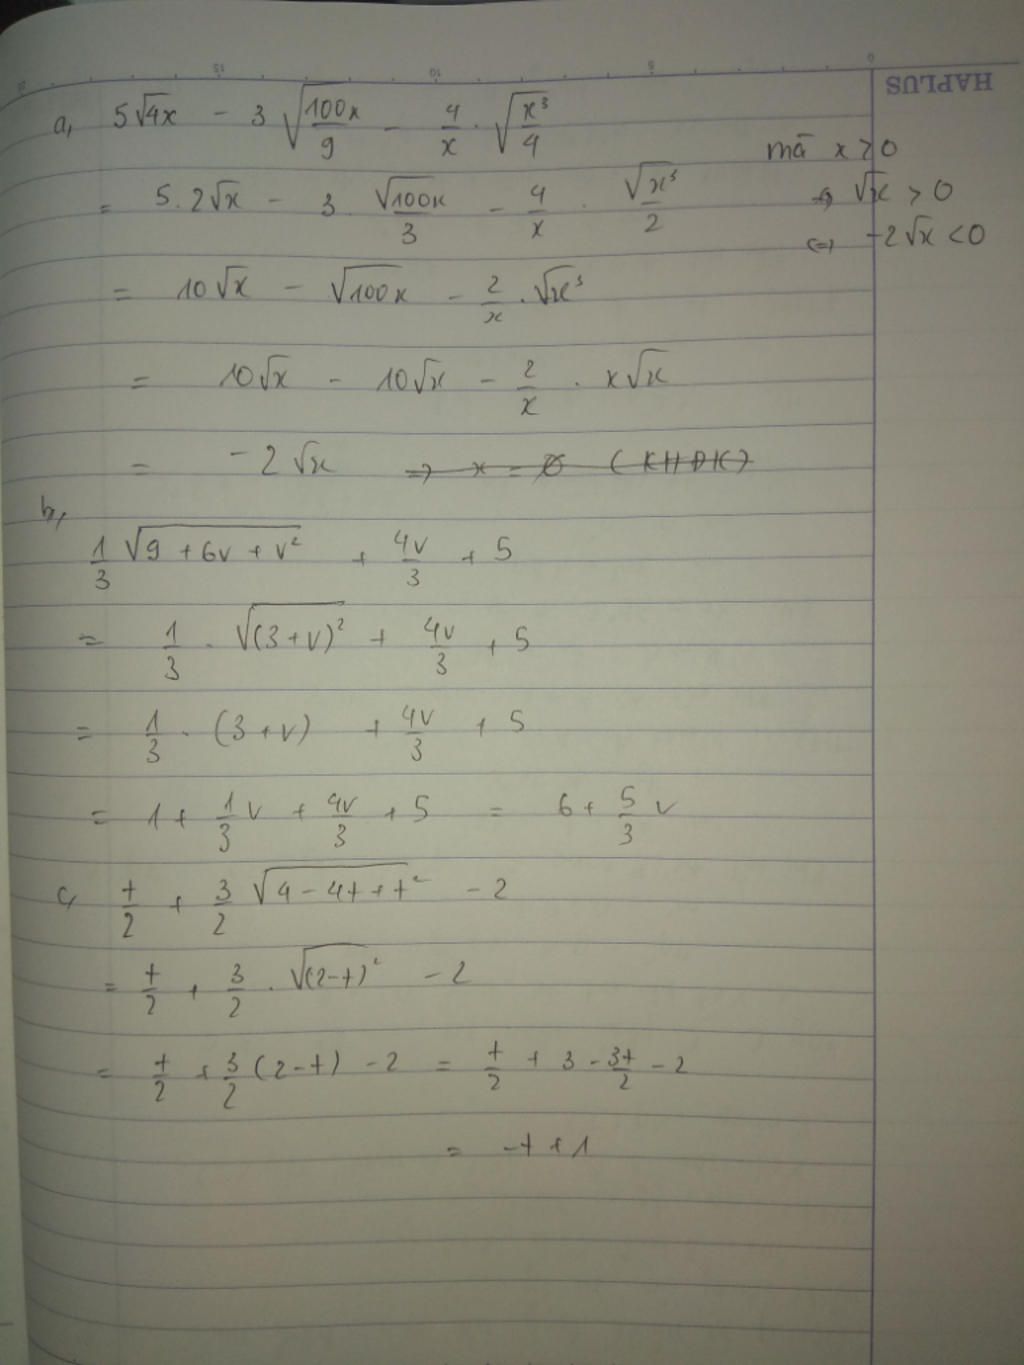 HAPLUS
0 5 10 15 20
a, 5√4x - 3 √(100x/9) - 4/x . √(x³/4)
mà x > 0
= 5.2√x - 3. √100x/3 - 4/x . √x³/2
=> √x > 0
<=> -2√x < 0
= 10√x - √100x - 2/x . √x³
= 10√x - 10√x - 2/x . x√x
= -2√x => x = 0 (KTĐK)
b,
1/3 √(9 + 6v + v²) + 4v/3 + 5
= 1/3 . √(3+v)² + 4v/3 + 5
= 1/3 . (3+v) + 4v/3 + 5
= 1 + 1/3 v + 4v/3 + 5 = 6 + 5/3 v
c, t/2 + 3/2 √(4 - 4t + t²) - 2
= t/2 + 3/2 . √(2-t)² - 2
= t/2 + 3/2 (2-t) - 2 = t/2 + 3 - 3t/2 - 2
= -t + 1